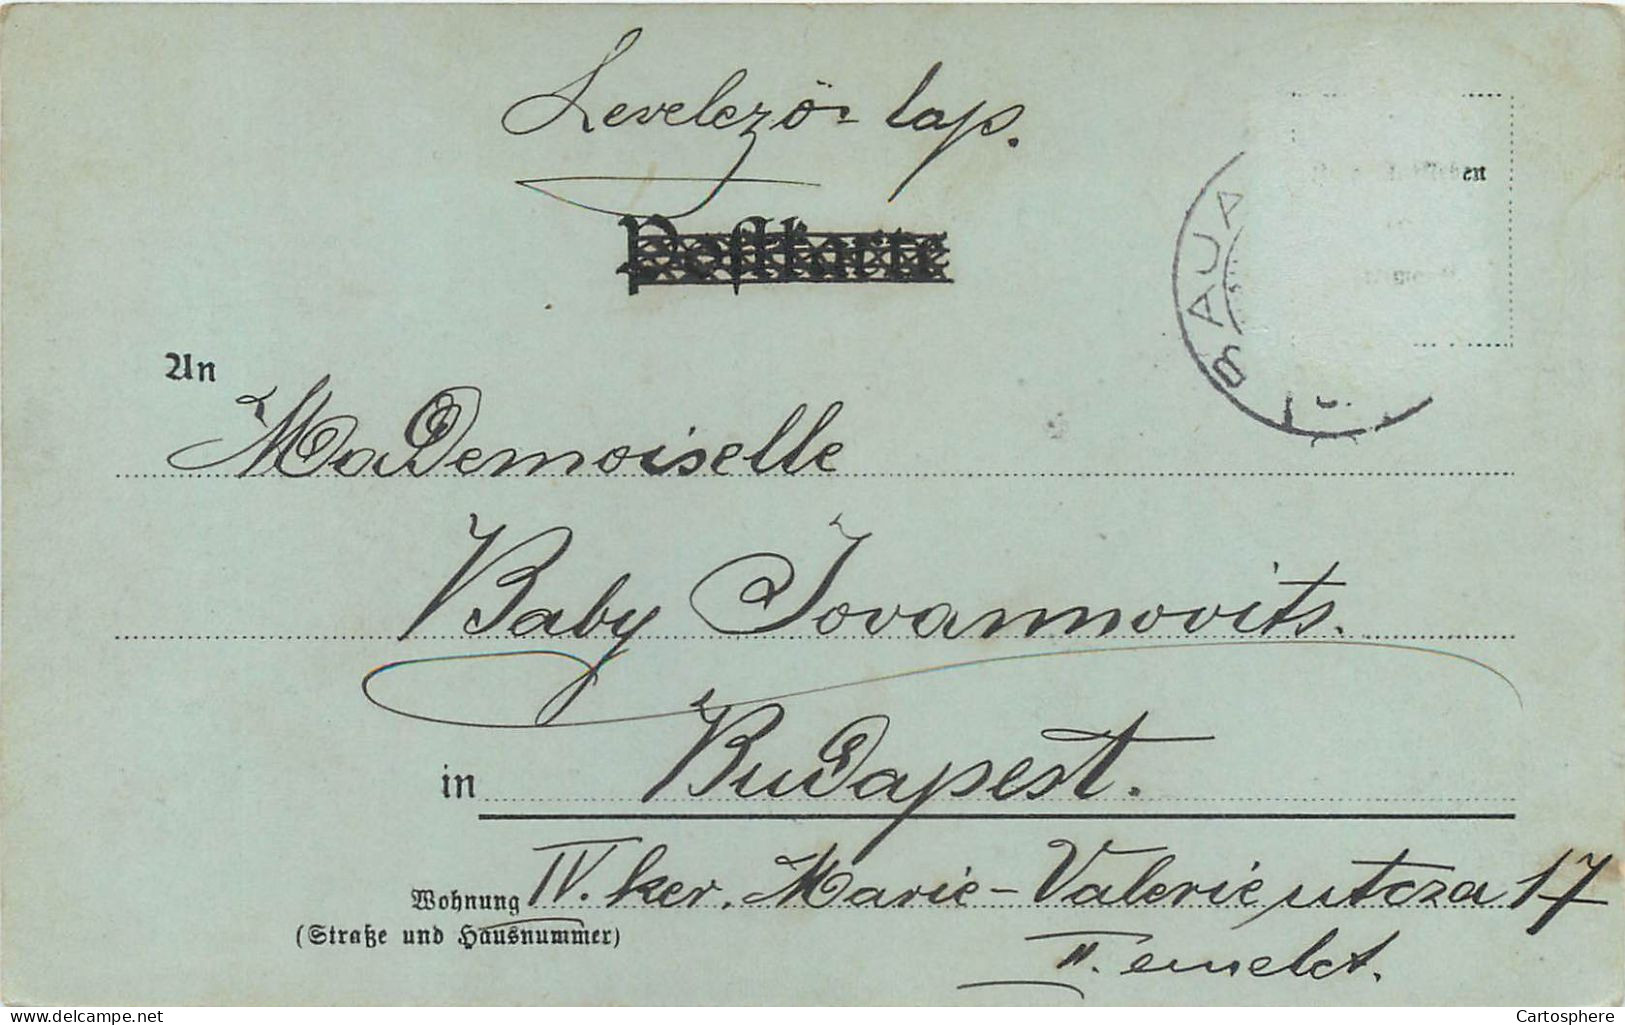 Levelező-lap.
Postkarte
BAUA
An
MaDemoiselle
Baby Jovannovits.
in BuDapest.
Wohnung IV. ker. Marie-Valerie utcza 17
(Straße und Hausnummer)
II. emelet.
www.delcampe.net
Cartosphere